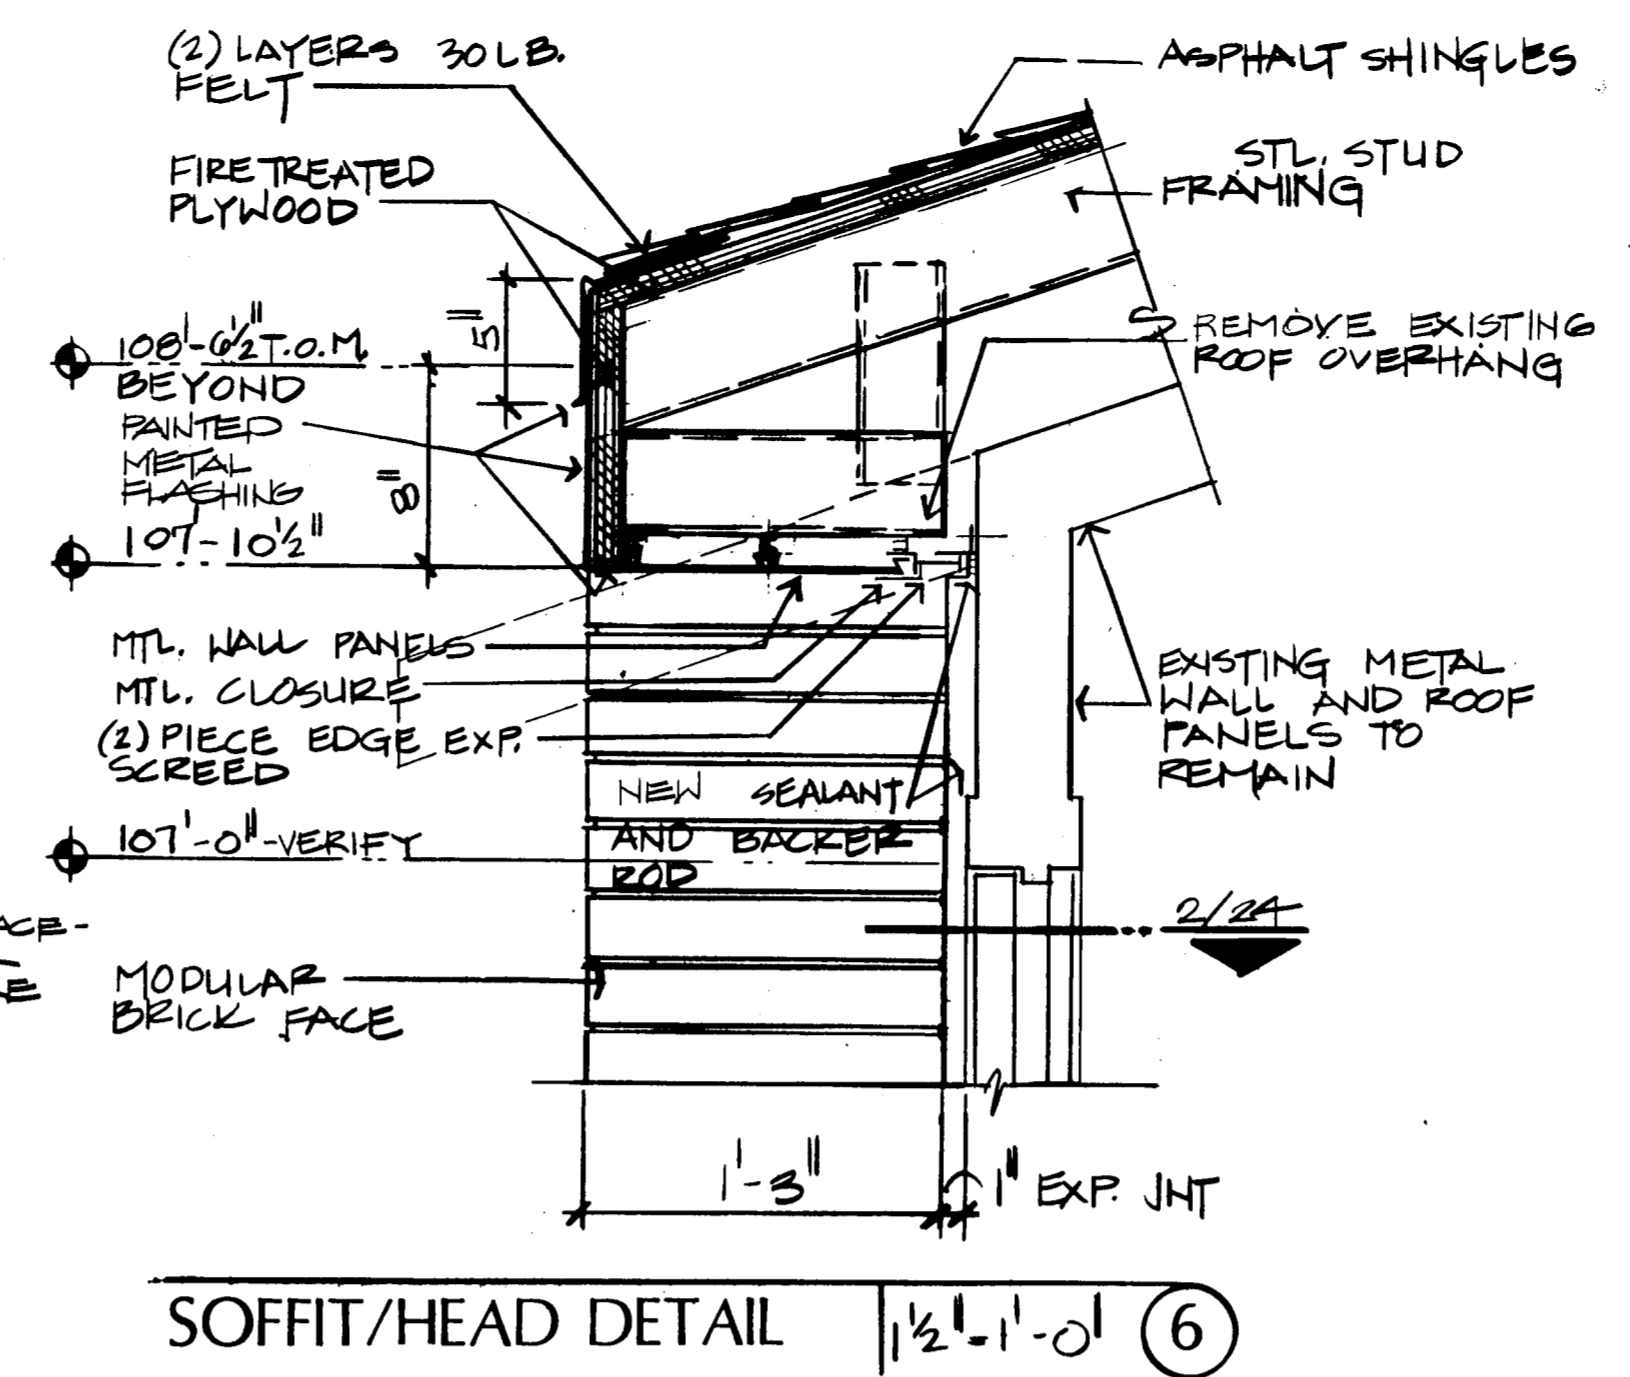 (2) LAYERS 30 LB.
FELT
ASPHALT SHINGLES
FIRE TREATED
PLYWOOD
STL. STUD
FRAMING
5"
108'-6½" T.O.M.
BEYOND
REMOVE EXISTING
ROOF OVERHANG
PAINTED
METAL
FLASHING
8"
107'-10½"
MTL. WALL PANELS
MTL. CLOSURE
(2) PIECE EDGE EXP.
SCREED
EXISTING METAL
WALL AND ROOF
PANELS TO
REMAIN
NEW SEALANT
AND BACKER
ROD
107'-0"-VERIFY
2/24
MODULAR
BRICK FACE
1'-3"
1" EXP. JNT
SOFFIT/HEAD DETAIL
1½"-1'-0"
6